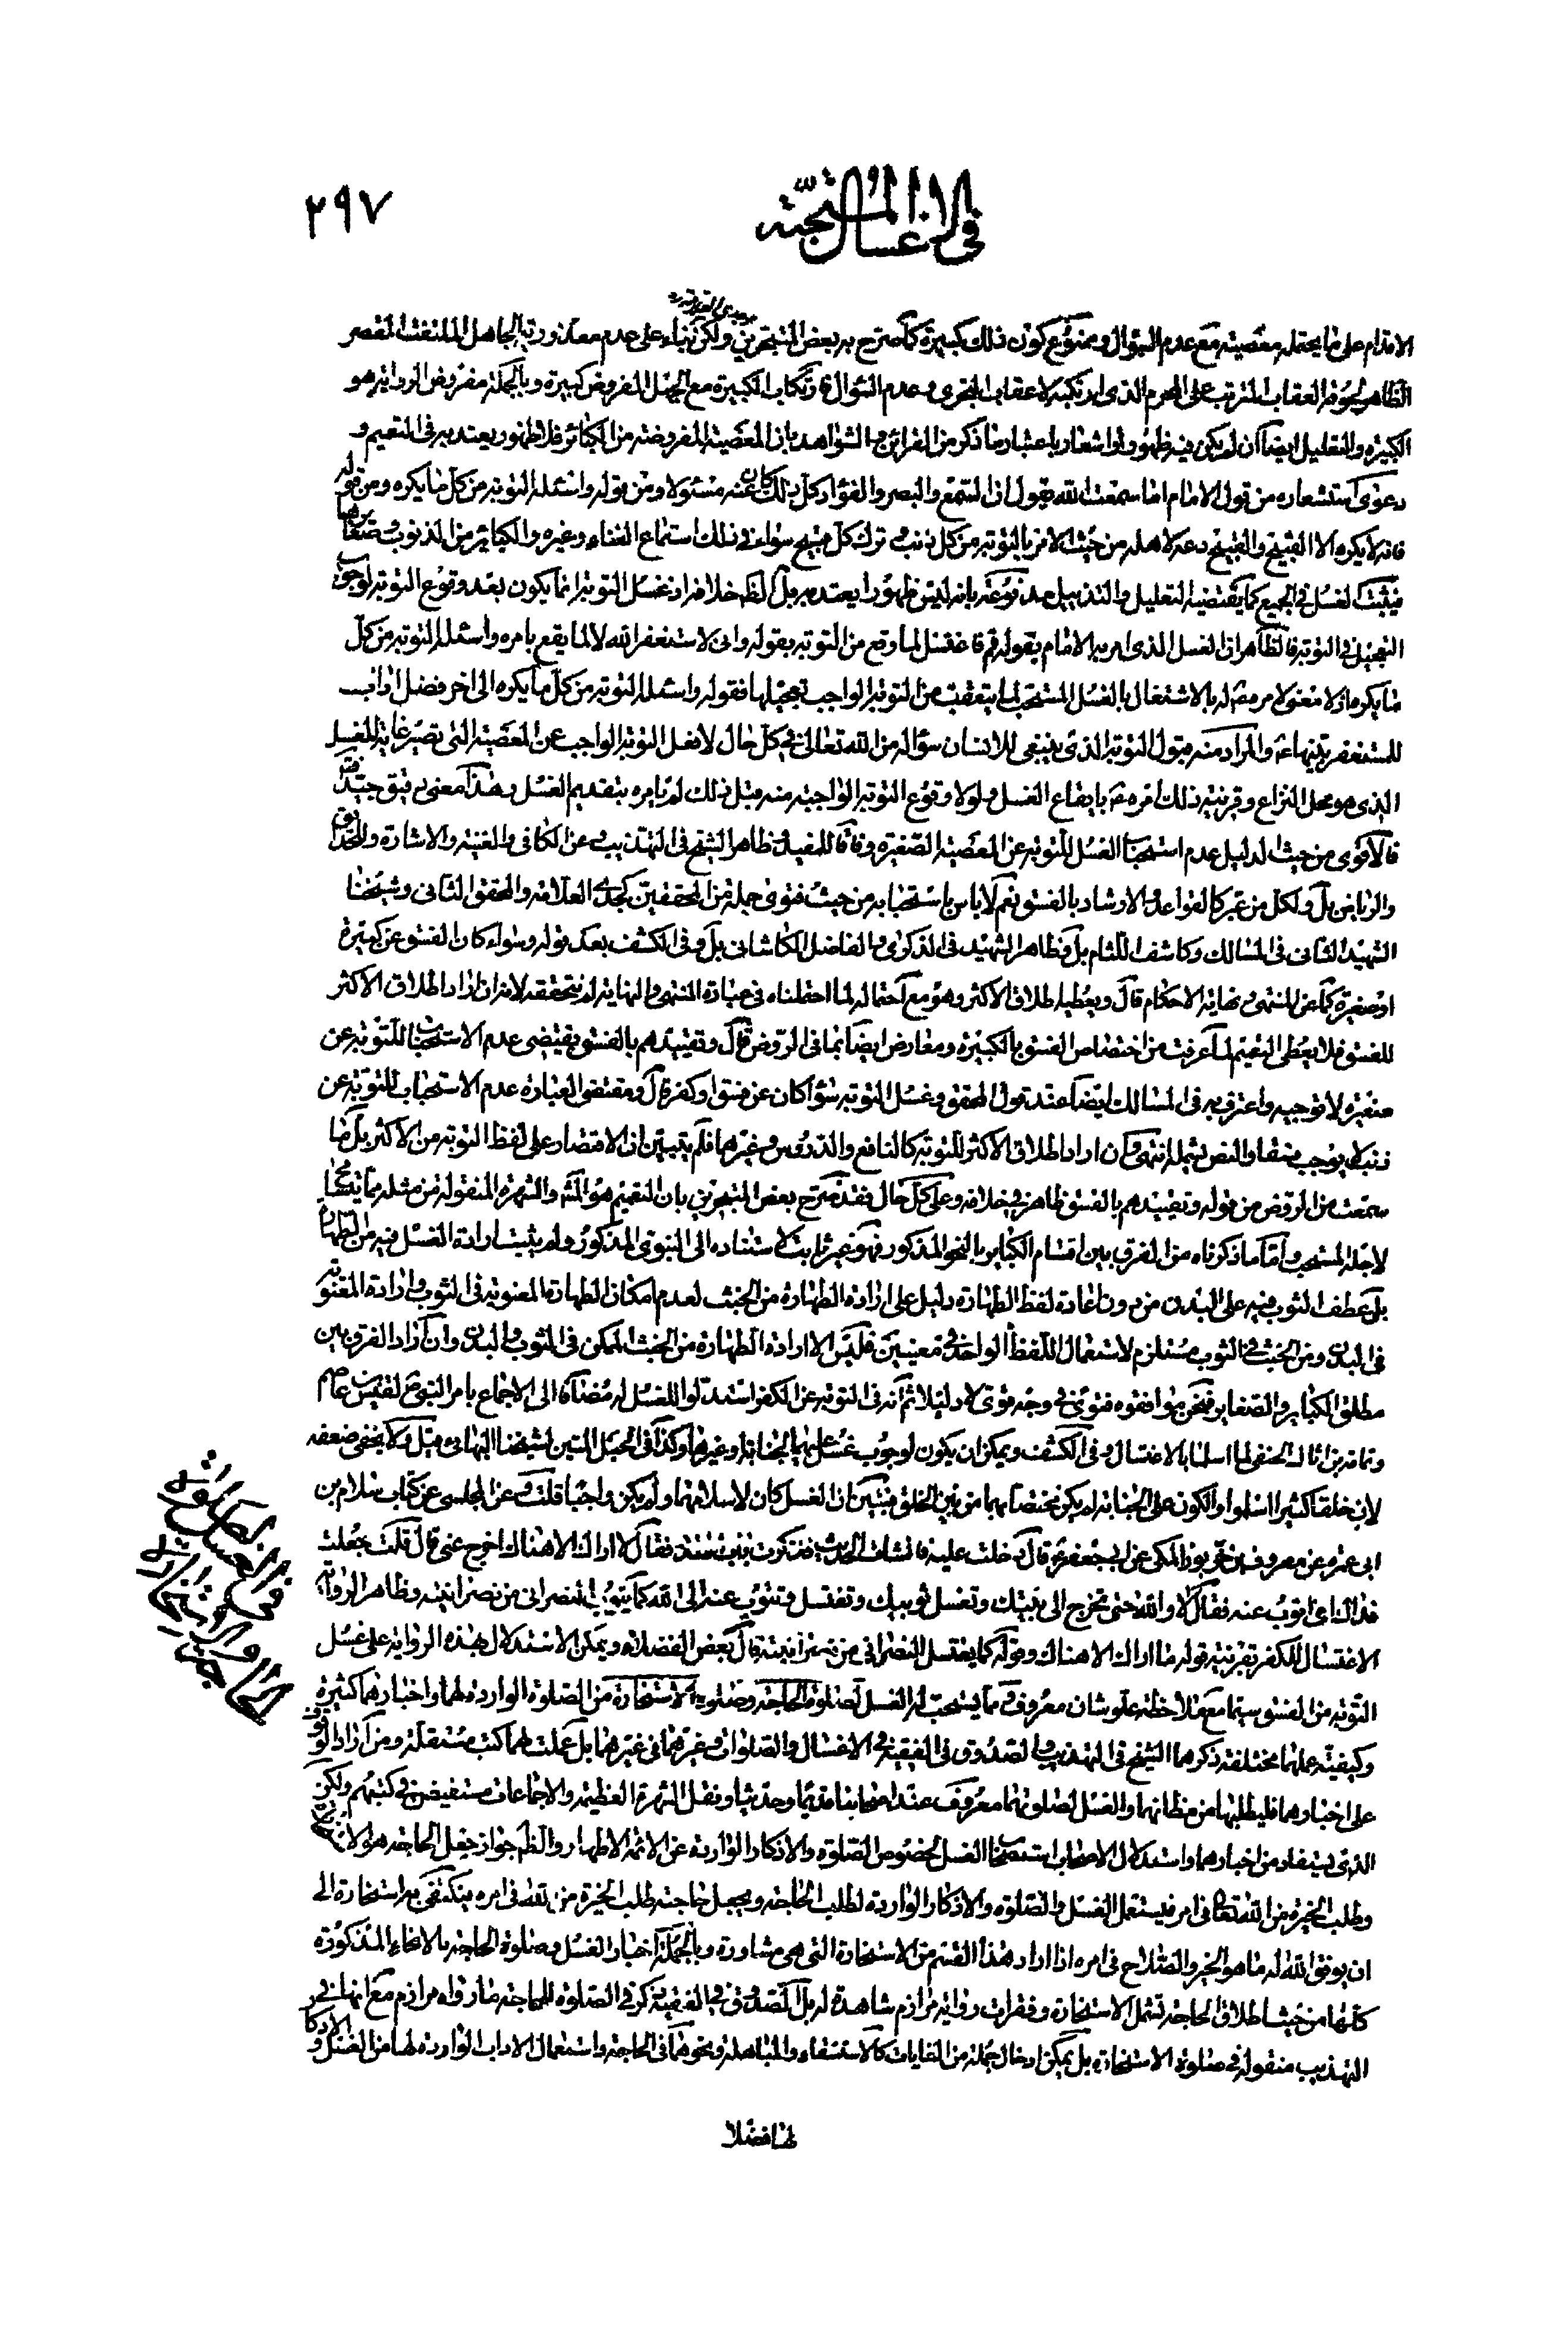 في الاغسال المستحبّة
٢٩٧
الاقدام على ما يحتمله معصيته مع عدم السؤال وممنوع كون ذلك كبيرة كما صرح به بعض المتبحرين ولكن بناء على عدم معذورية الجاهل الملتفت المقصر
الظاهر لحوق العقاب المترتب على المحرم الذى ارتكبه لا عقاب التجرى وعدم السؤال فارتكاب الكبيرة مع الجهل المفروض كبيرة وبالجملة مفروض الرواية هو
الكبيرة والتعليل ايضا ان لم يكن فيه ظهور ولو اشعار باعتبار ما ذكر من القرائن والشواهد بان المعصية المفروضة من الكبائر فلا ظهور يعتد به فى التعميم و
دعوى استشعاره من قول الامام اما سمعت الله يقول ان السمع والبصر والفؤاد كل ذلك كان عنه مسئولا ومن قوله واسئله التوبة من كل ما يكره ومن قوله
فانه لا يكره الا القبيح والقبيح دعه لاهله من حيث الامر بالتوبة من كل ذنب وترك كل قبيح سواء فى ذلك استماع الغناء وغيره والكبائر من الذنوب وصغائرها
فيثبت الغسل فى الجميع كما يقتضيه التعليل والتذييل مدفوعة بانه ليس ظهورا يعتد به بل الظ خلافه اذ غسل التوبة انما يكون بعد وقوع التوبة لوجوب
التعجيل فى التوبة فالظاهر ان الغسل الذى امر به الامام بقوله قم فاغتسل لما وقع من التوبة بقوله وانى لاستغفر الله لا لما يقع بامره واسئله التوبة من كل
ما يكره اذ لا معنى لامره له بالاشتغال بالغسل المستحب لما يتعقب من التوبة الواجب تعجيلها فقوله واسئله التوبة من كل ما يكره الى اخر فضل اداب
للمستغفر والمراد منه قبول التوبة الذى ينبغى للانسان سؤاله من الله تعالى فى كل حال لا فعل التوبة الواجب عن المعصية التى تصير غاية للغسل
الذى هو محل النزاع وقرينة ذلك امره بايقاع الغسل ولولا وقوع التوبة الواجبة منه قبل ذلك لم يامره بتقديم الغسل وهذا معنى دقيق جيد
فالاقوى من حيث الدليل عدم استحباب الغسل للتوبة عن المعصية الصغيرة وفاقا للمفيد وظاهر الشيخ فى التهذيب وعن الكافى والغنية والاشارة والحدائق
والرياض بل ولكل من عبر كالقواعد والارشاد بالفسق نعم لا باس باستحبابه من حيث فتوى جملة من المحققين كجدى العلامة والمحقق الثانى وشيخنا
الشهيد الثانى فى المسالك وكاشف اللثام بل وظاهر الشهيد فى الذكرى والفاضل الكاشانى بل وفى الكشف بعد قوله وسواء كان الفسق عن كبيرة
او صغيرة كما عن المنتهى ونهاية الاحكام قال ويعطيه اطلاق الاكثر وهو مع احتماله لما احتملناه فى عبارة المنتهى والنهاية لم نتحققه لانه ان اراد اطلاق الاكثر
للفسق فلا يعطى التعميم لما عرفت من اختصاص الفسق بالكبيرة ومعارض ايضا بما فى الروض قال وتقييدهم بالفسق يقتضى عدم الاستحباب للتوبة عن
صغيرة لا توجبه واعترف به فى المسالك ايضا عند قول المحقق وغسل التوبة سواء كان عن فسق او كفر قال ومقتضى العبارة عدم الاستحباب للتوبة عن
ذنب لا يوجب فسقا والنص يشمله انتهى وان اراد اطلاق الاكثر للتوبة كالنافع والدروس وغيرهما فلم يتبين ان الاقتصار على لفظ التوبة من الاكثر بل ما
سمعت من الروض من قوله وتقييدهم بالفسق ظاهر فى خلافه وعلى كل حال فقد صرح بعض المتبحرين بان التعميم هو المش والشهرة المنقولة من مثله مما يتسامح
لاجله المستحب واما ما ذكرناه من الفرق بين اقسام الكبائر بالنحو المذكور فهو غير ثابت لاستناده الى النبوى المذكور ولم يثبت ارادة الغسل فيه من الطهارة
بل عطف الثوب فيه على البدن من دون اعادة لفظ الطهارة دليل على ارادة الطهارة من الخبث لعدم امكان الطهارة المعنوية فى الثوب وارادة المعنوية
فى البدن ومن الخبث فى الثوب مستلزم لاستعمال اللفظ الواحد فى معنيين فليس الا ارادة الطهارة من الخبث الممكن فى الثوب والبدن وان اراد الفرق بين
مطلق الكبائر والصغاير فنحن موافقوه فتوى فى وجه قوى لا دليلا ثم انه فى التوبة عن الكفر استدلوا للغسل له مضافا الى الاجماع بامر النبى لقيس بن عاصم
وثمامة بن اثال الحنفى لما اسلما بالاغتسال وفى الكشف ويمكن ان يكون لوجوب غسل عليهما لجنابة او غيرها وكذا فى الحبل المتين لشيخنا البهائى قبل ولا يخفى ضعفه
لان خلقا كثيرا اسلموا والكون على الجنابة لم يكن مختصا بهما من بين الخلق فيتبين ان الغسل كان لاسلامهما ولم يكن واجبا قلت وعن المجلسى عن كتاب سلام بن
ابى عمرة عن معروف بن خربوذ المكى عن ابى جعفر قال دخلت عليه فانشات الحديث فذكرت باب فقال لا اراك الا هناك اخرج عنى قال قلت جعلت
فداك انى اتوب عنه فقال لا والله حتى تخرج الى بيتك وتغسل ثوبيك وتغتسل وتتوب عنه الى الله كما يتوب النصرانى من نصرانيته وظاهر الرواية
الاغتسال للكفر بقرينة قوله ما اراك الا هناك وقوله كما يغتسل النصرانى من نصرانيته قال بعض الفضلاء ويمكن الاستدلال بهذه الرواية على غسل
التوبة من الفسق سيما مع ملاحظة علو شان معروف ومما يستحب له الغسل لصلوة الحاجة وصلوة الاستخارة من الصلوة الواردة لهما واخبارهما كثيرة
وكيفية عليهما مختلفة ذكرها الشيخ فى التهذيب والصدوق فى الفقيه فى الاغسال والصلوات وغيرهما فى غيرهما بل عملت لهما كتب مستقلة ومن اراد الوقوف
على اخبارهما فليطلبها من مظانهما والغسل لصلوتهما معروف عند اصحابنا قديما وحديثا ونقل الشهرة العظيمة والاجماعات مستفيض فى كتبهم ولكن
الذى يستفاد من اخبارهما واستدلال الاصحاب استحباب الغسل لخصوص الصلوة والاذكار الواردة عن الائمة الاطهار والظ جواز جعل الحاجة هو
وطلب الخيرة من الله تعالى فى امر فيستعمل الغسل والصلوة والاذكار الواردة لطلب الحاجة ويجعل حاجته طلب الخيرة من الله فى امره به استخارة الى
ان يوفق الله له ما هو الخير والصلاح فى امره اذا اراد هذا القسم من الاستخارة التى هى مشاورة وبالجملة اخبار الغسل وصلوة الحاجة بالانحاء المذكورة
كلها من حيث اطلاق الحاجة تشمل الاستخارة وفقرات رواية مرازم شاهدة له بل الصدوق فى الفقيه ذكر فى الصلوة للحاجة ما رواه مرازم مع انها فى
التهذيب منقولة فى صلوة الاستخارة بل يمكن ادخال جملة من الغايات كالاستسقاء والمباهلة ونحوهما فى الحاجة واستعمال الاداب الواردة لها من الغسل و الاذكار
لها فضلا